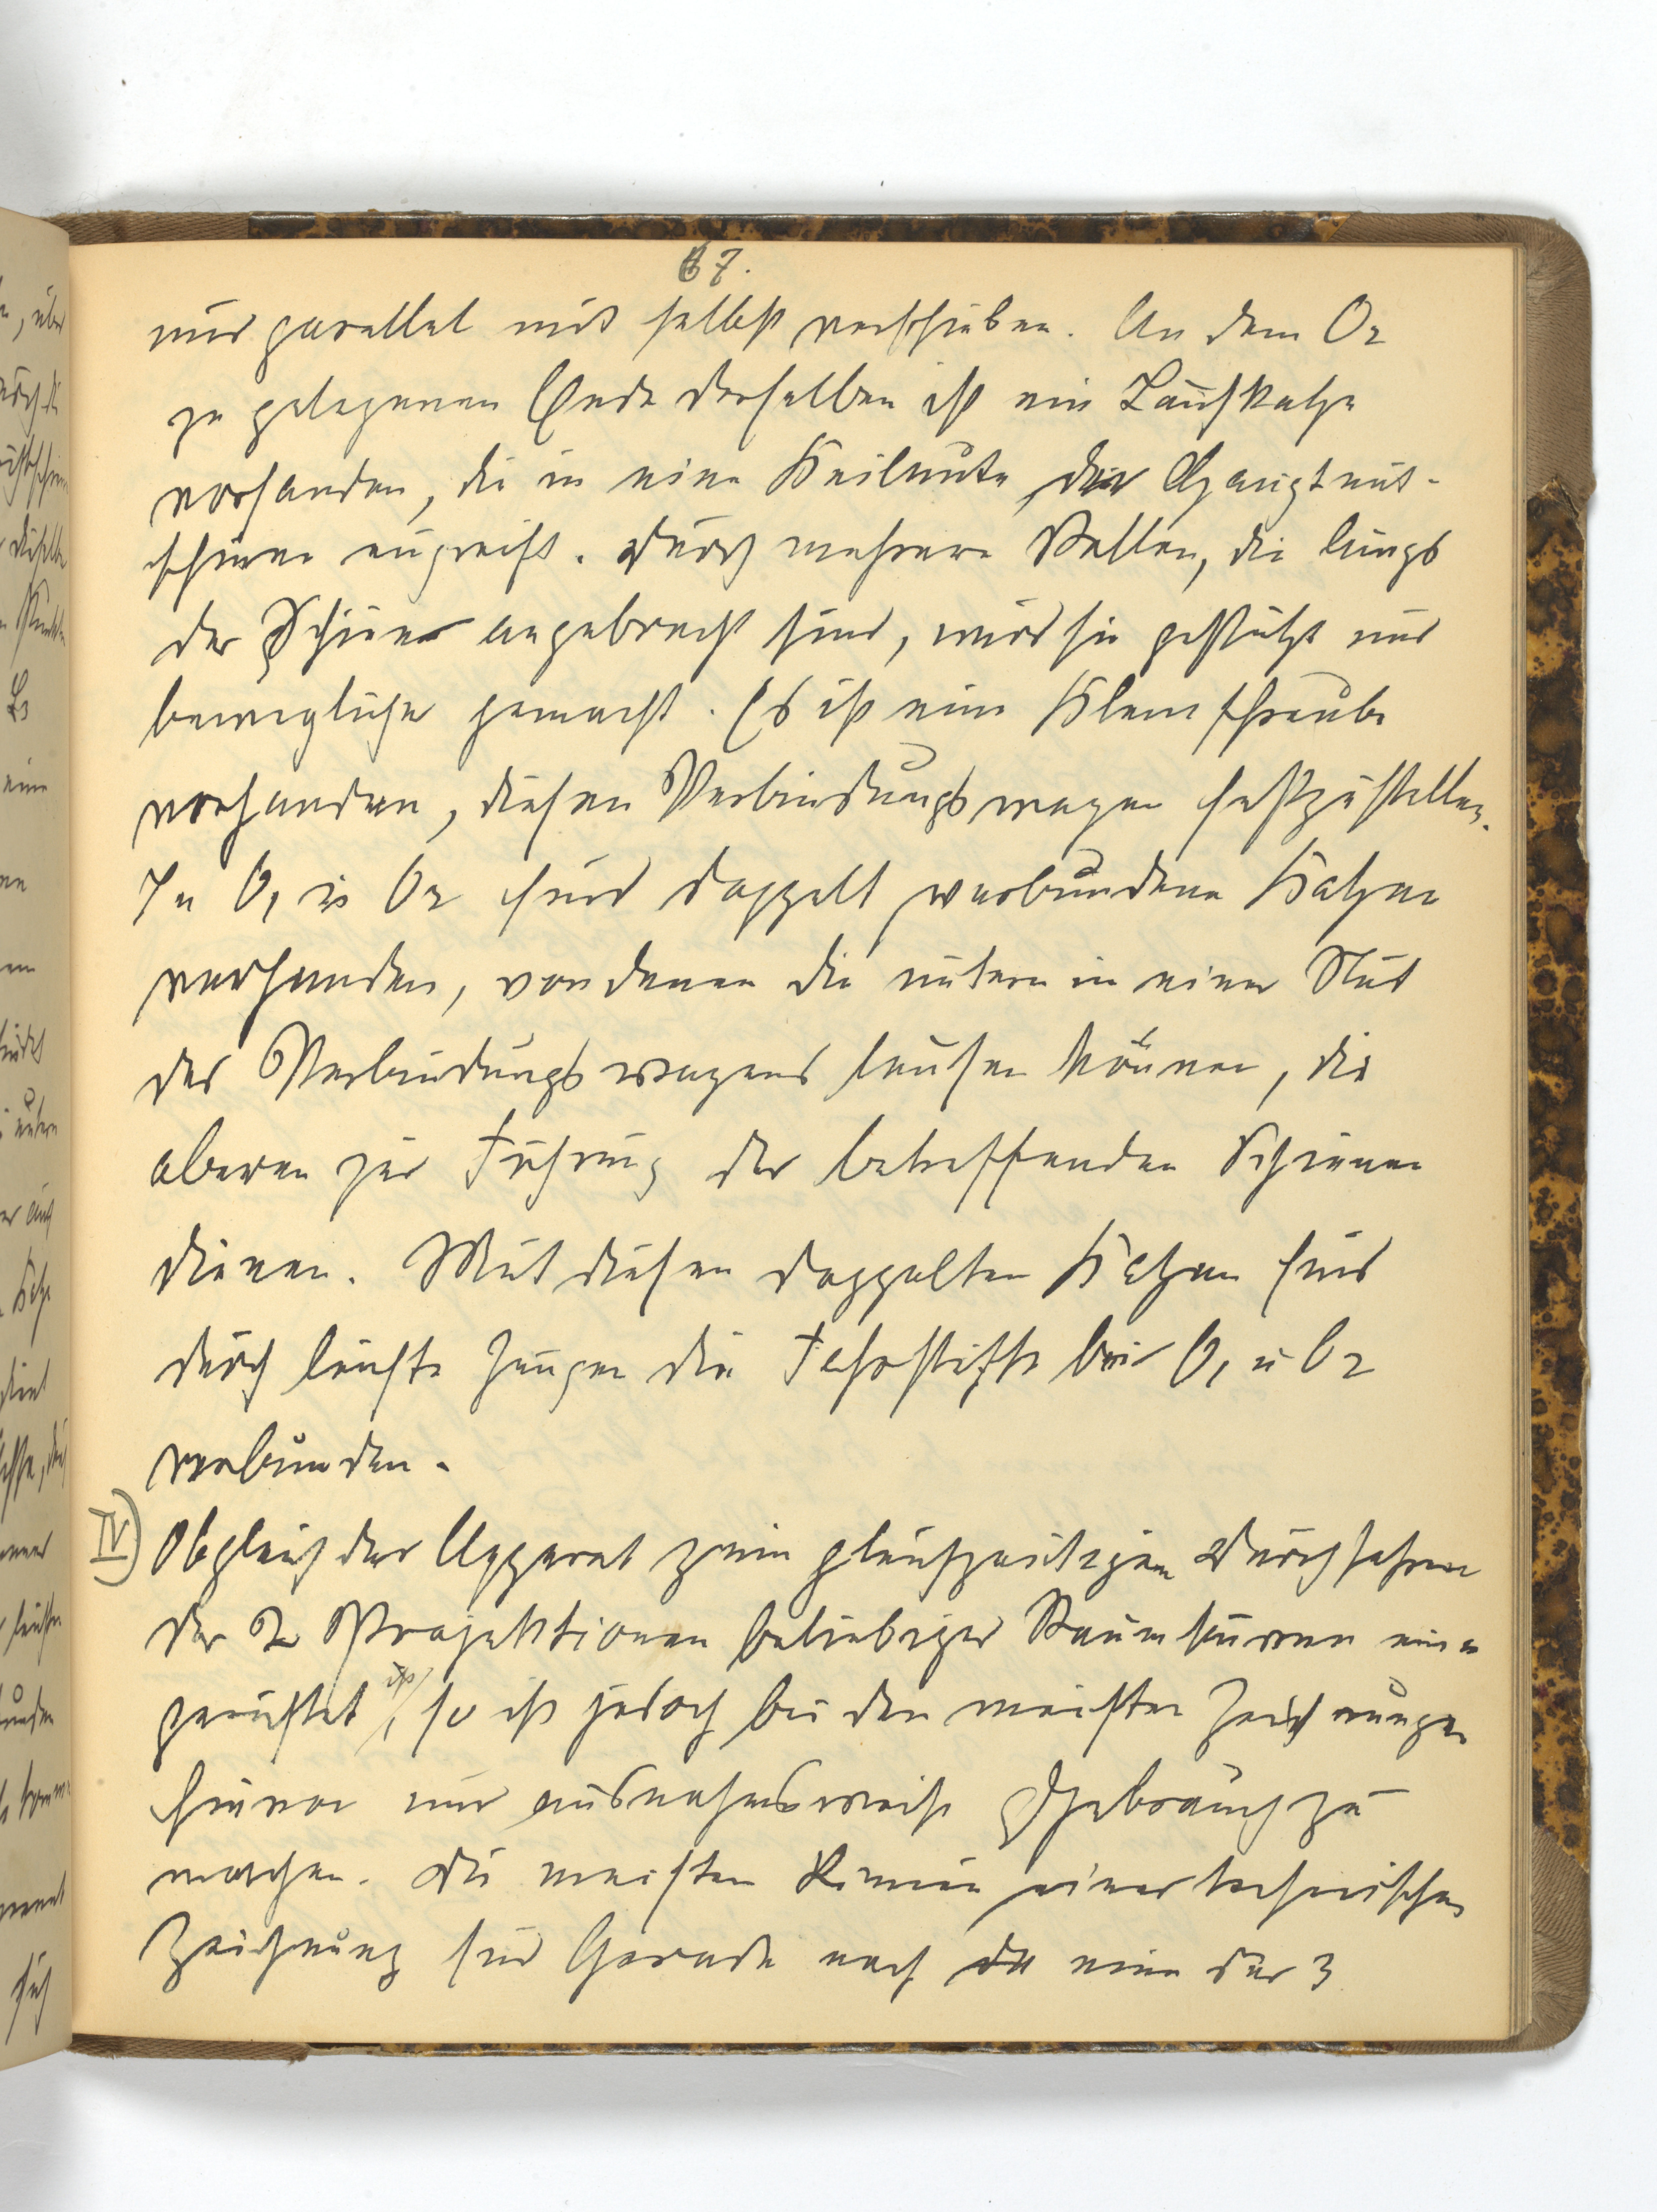 67.
nur parallel mit selbst verschieben. An dem O2
zu gelegenen Ende derselben ist ein Laufkatze
vorhanden, die in eine Keilnute der Hauptnut-
schiene eingreift. Durch mehrere Rollen, die längs
der Schiene angebracht sind, wird sie gestützt und
beweglicher gemacht. Es ist eine Klemschraube
vorhanden, diesen Verbindungswagen festzustellen.
In O1 u O2 sind doppelt verbundene Katzen
vorhanden, von denen die untern in einer Nut
des Verbindungswagens laufen können, die
oberen zur Führung der betreffenden Schienen
dienen. Mit diesen doppelten Katzen sind
durch leichte Zungen die Fahrstifte bei O1 u O2
verbunden.
IV) Obgleich der Apparat zum gleichzeitigen Durchfahren
der 2 Projektionen beliebiger Raumkurven ein=
gerichtet ist, so ist jedoch bei den meisten Zeichnungen
hiervon nur ausnahmsweise Gebrauch zu
machen. Die meisten Linien einer technischen
Zeichnung sind Gerade nach eine der 3